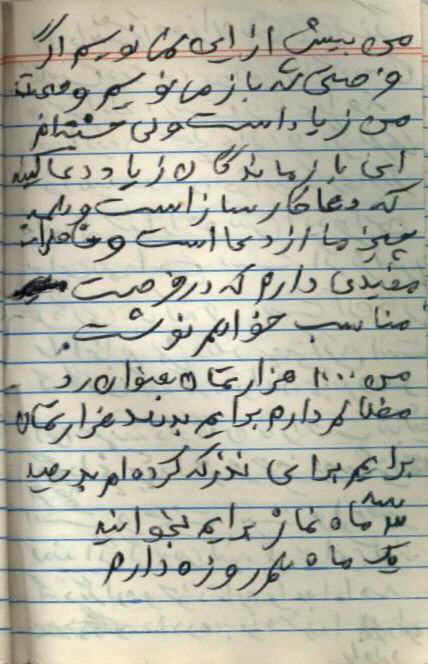 من بیش از این نمی نویسم اگر
فرصتی شد باز می نویسم وصحبت
من زیاد است ولی خسته ام
ای بازماندگان زیاد دعا کنید
که دعا کار ساز است وهمه
چیز ما از دعا است و خاطرات
مفیدی دارم که در فرصت
مناسب خواهم نوشت.
من ۱۰۰۰ هزار تمان بعنوان رد
مظالم دارم برایم بدهید هزار تمان
برایم برای نذر که کرده ام بدهید
سه ماه نماز برایم بخوانید
یک ماه هم روزه دارم